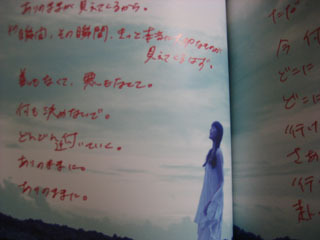 ありのままが見えてくるから。
瞬間、その瞬間、きっと本当に
見えてくるはず。
善もなくて、悪もなくて。
何も決めないで。
どんどん近付いていく。
ありのままに。
ありのままに。
ただ
今
どこに
どこに
"行
さあ
"行